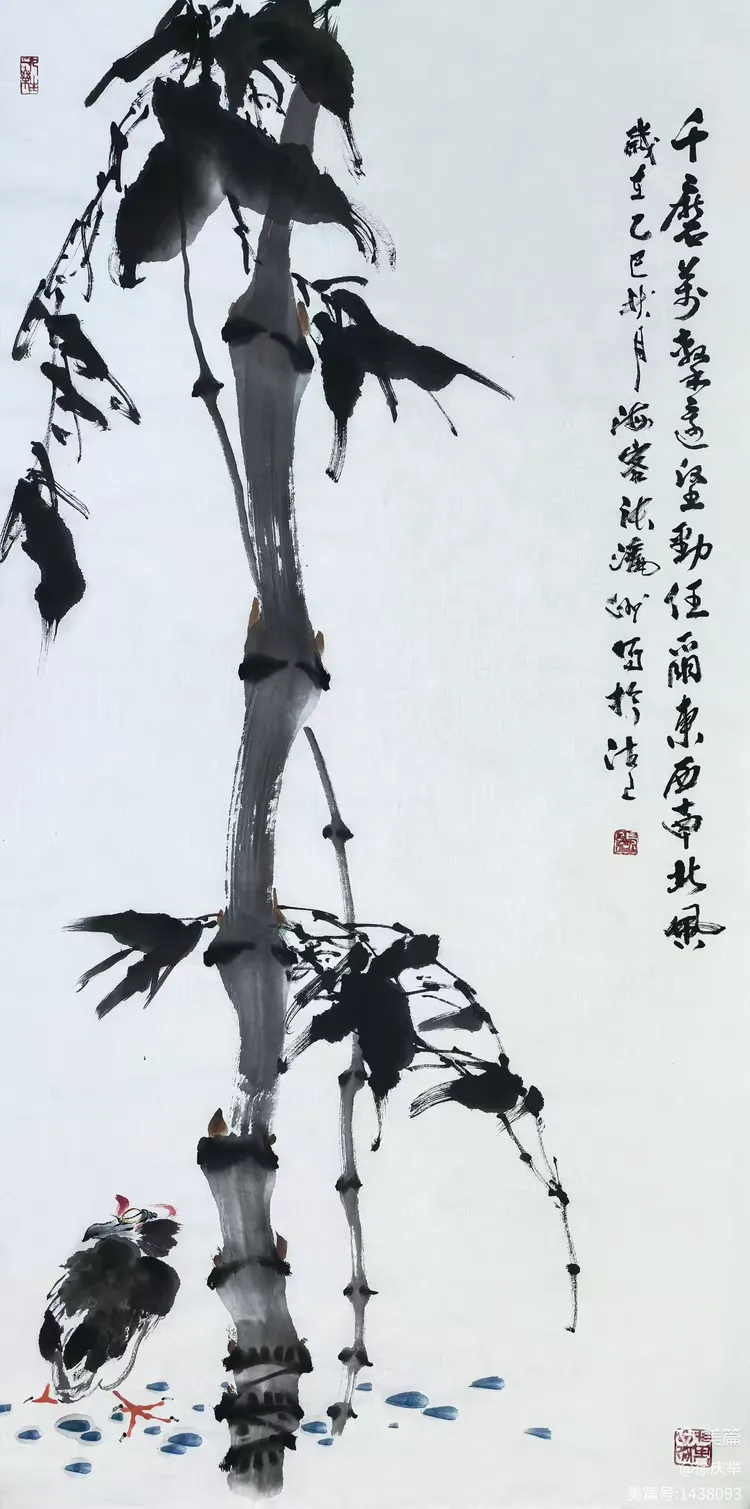 千磨萬擊還堅勁任爾東西南北風
歲在乙巳秋月海客張瀛洲寫於沽上
美篇
@徐庆举
美篇号:1438093